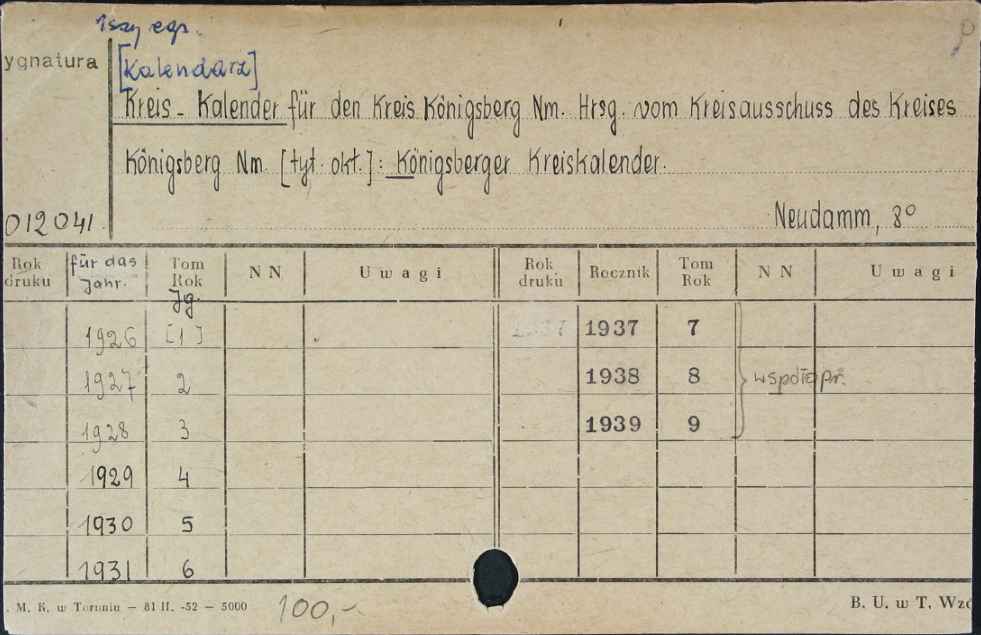 1szy egz.
ygnatura [Kalendarz]
Kreis-Kalender für den Kreis Königsberg Nm. Hrsg. vom Kreisausschuss des Kreises
Königsberg Nm. [tyt. okł.]: Königsberger Kreiskalender.
012041 Neudamm, 8°
Rok druku für das Jahr. Tom Rok Jg. NN Uwagi Rok druku Rocznik Tom Rok NN Uwagi
1926 [1] 1937 1937 7
1927 2 1938 8 współopr.
1928 3 1939 9
1929 4
1930 5
1931 6
. M. K. w Toruniu — 81 II. -52 — 5000 100,- B. U. w T. Wzó